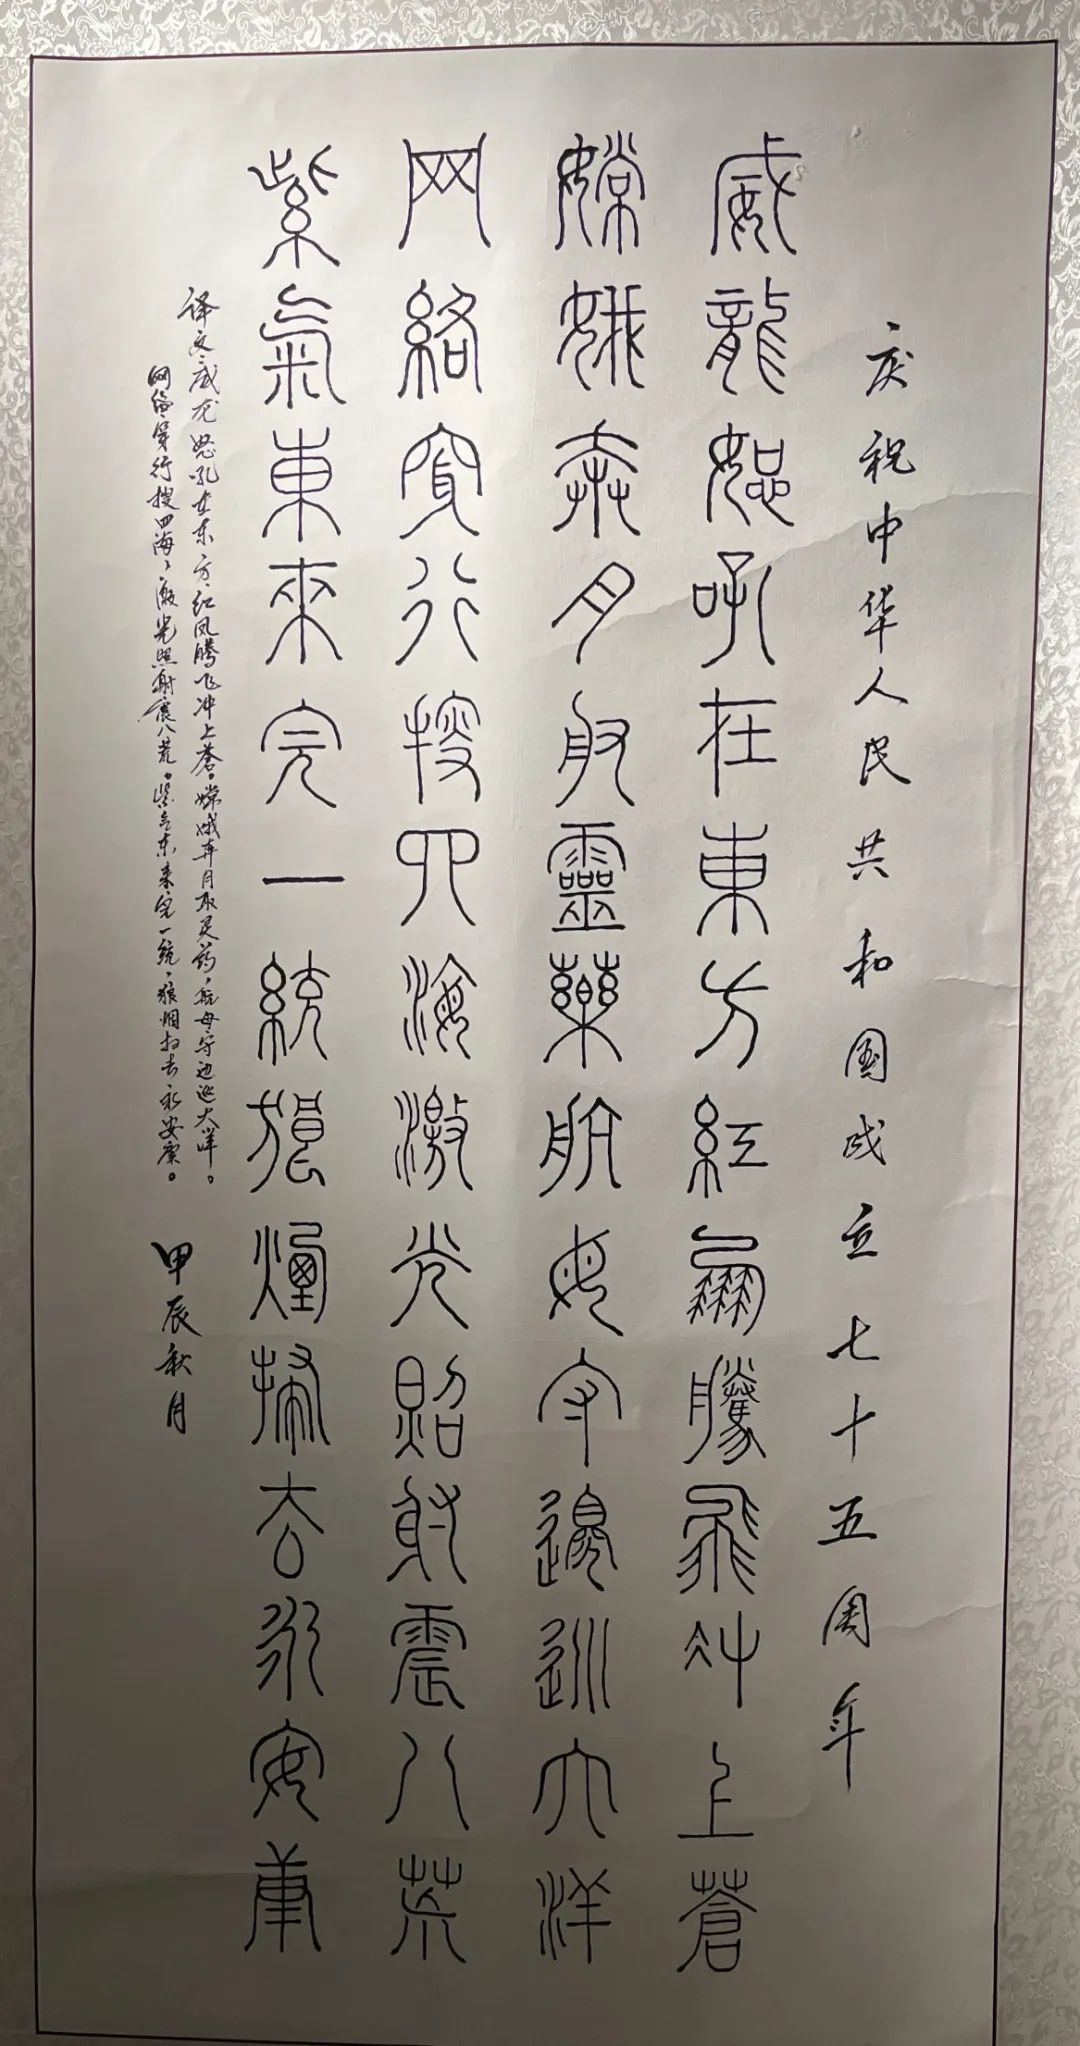 庆祝中华人民共和国成立七十五周年
威龍怒吼在東方紅鳳騰飛沖上蒼
嫦娥奔月取靈藥航母守邊巡大洋
网絡穿行搜四海激光照射震八荒
紫氣東來完一統狼煙掃去永安康
译文：威龙怒吼在东方，红凤腾飞冲上苍。嫦娥奔月取灵药，航母守边巡大洋。
网络穿行搜四海，激光照射震八荒。紫气东来完一统，狼烟扫去永安康。
甲辰秋月